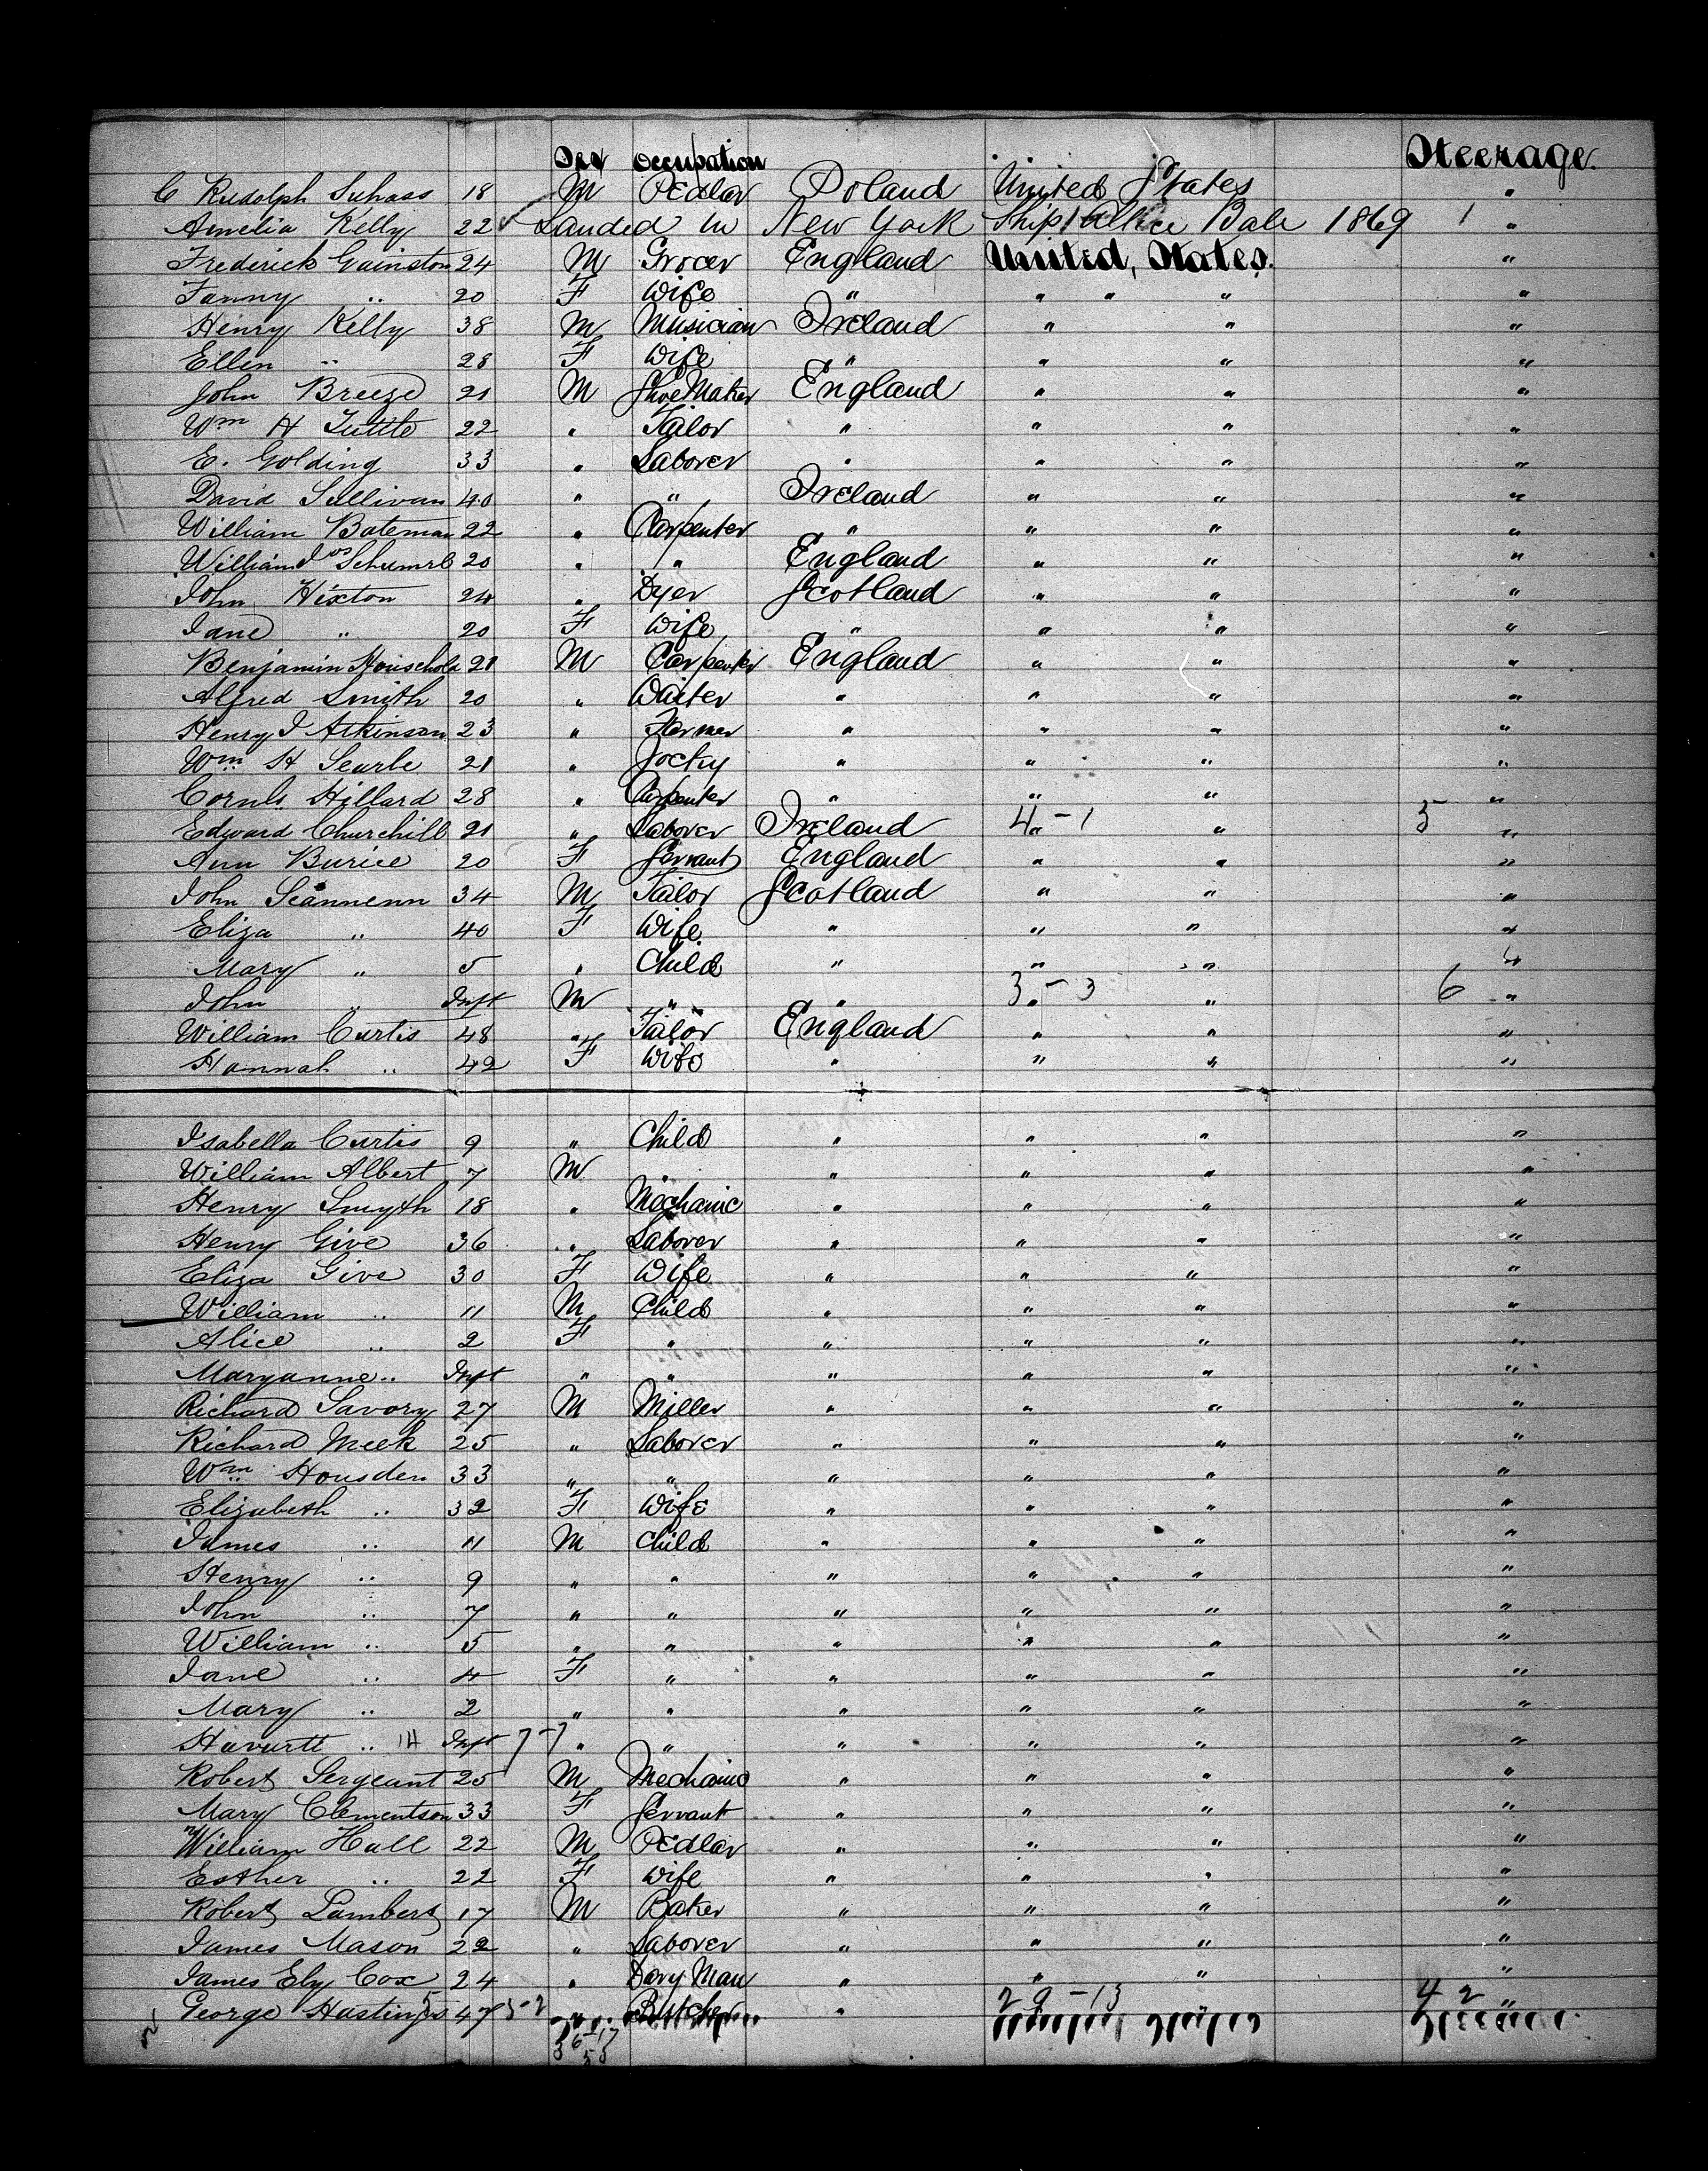 Sex Occupation Steerage.
C Rudolph Suhass 18 M Pedlar Poland United States "
Amelia Kelly 22 ✓ Landed in New York Ship Alice Bale 1869 1 "
Frederick Gainston 24 M Grocer England United, States. "
Fanny " 20 F Wife " " " " "
Henry Kelly 38 M Musician Ireland " " "
Ellen " 28 F Wife " " " "
John Breeze 21 M Shoe Maker England " " "
Wm H Tuttle 22 " Tailor " " " "
E. Golding 33 " Laborer " " " "
David Sullivan 40 " " Ireland " " "
William Bateman 22 " Carpenter " " " "
William 20 " " England " " "
John Hixton 24 " Dyer Scotland " " "
Jane " 20 F Wife " " " "
Benjamin Household 21 M Carpenter England " " "
Alfred Smith 20 " Waiter " " " "
Henry J Atkinson 23 " Farmer " " " "
Wm H Searle 21 " Jocky " " " "
Cornls. Hillard 28 " Carpenter " " " "
Edward Churchill 21 " Laborer Ireland 4 - 1 " " 5 "
Ann Burice 20 F Servant England " " "
John Seannenn 34 M Tailor Scotland " " "
Eliza " 40 F Wife " " " "
Mary " 5 " Child " " " "
John " Inft M " " 3 - 3 " " 6 "
William Curtis 48 " Tailor England " " "
Hannah " 42 F Wife " " " "
Isabella Curtis 9 " Child " " " "
William Albert 7 M " " " "
Henry Smyth 18 " Mechanic " " " "
Henry Give 36 " Laborer " " " "
Eliza Give 30 F Wife " " " "
William " 11 M Child " " " "
Alice " 2 F " " " " "
Maryanne " Inft " " " " " "
Richard Savory 27 M Miller " " " "
Richard Meek 25 " Laborer " " " "
Wm Housden 33 " " " " " "
Elizabeth " 32 F Wife " " " "
James " 11 M Child " " " "
Henry " 9 " " " " " "
John " 7 " " " " " "
William " 5 " " " " " "
Jane " 4 F " " " " "
Mary " 2 " " " " " "
" 14 Inft 7-7 " " " " " "
Robert Sergeant 25 M Mechanic " " " "
Mary Clementson 33 F Servant " " " "
William Hall 22 M Pedlar " " " "
Esther " 22 F Wife " " " "
Robert Lambert 17 M Baker " " " "
James Mason 22 " Laborer " " " "
James Ely Cox 24 " Dary Man " " " "
George Hastings 47 5-2 " Butcher " 29 - 13 42 "
36-17
53